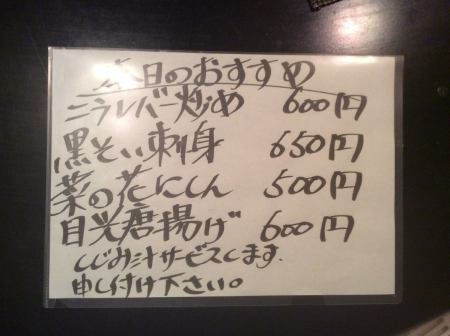 本日のおすすめ
ニラレバー炒め 600円
黒そい刺身 650円
菜の花にしん 500円
目光唐揚げ 600円
しじみ汁サービスします.
申し付け下さい。